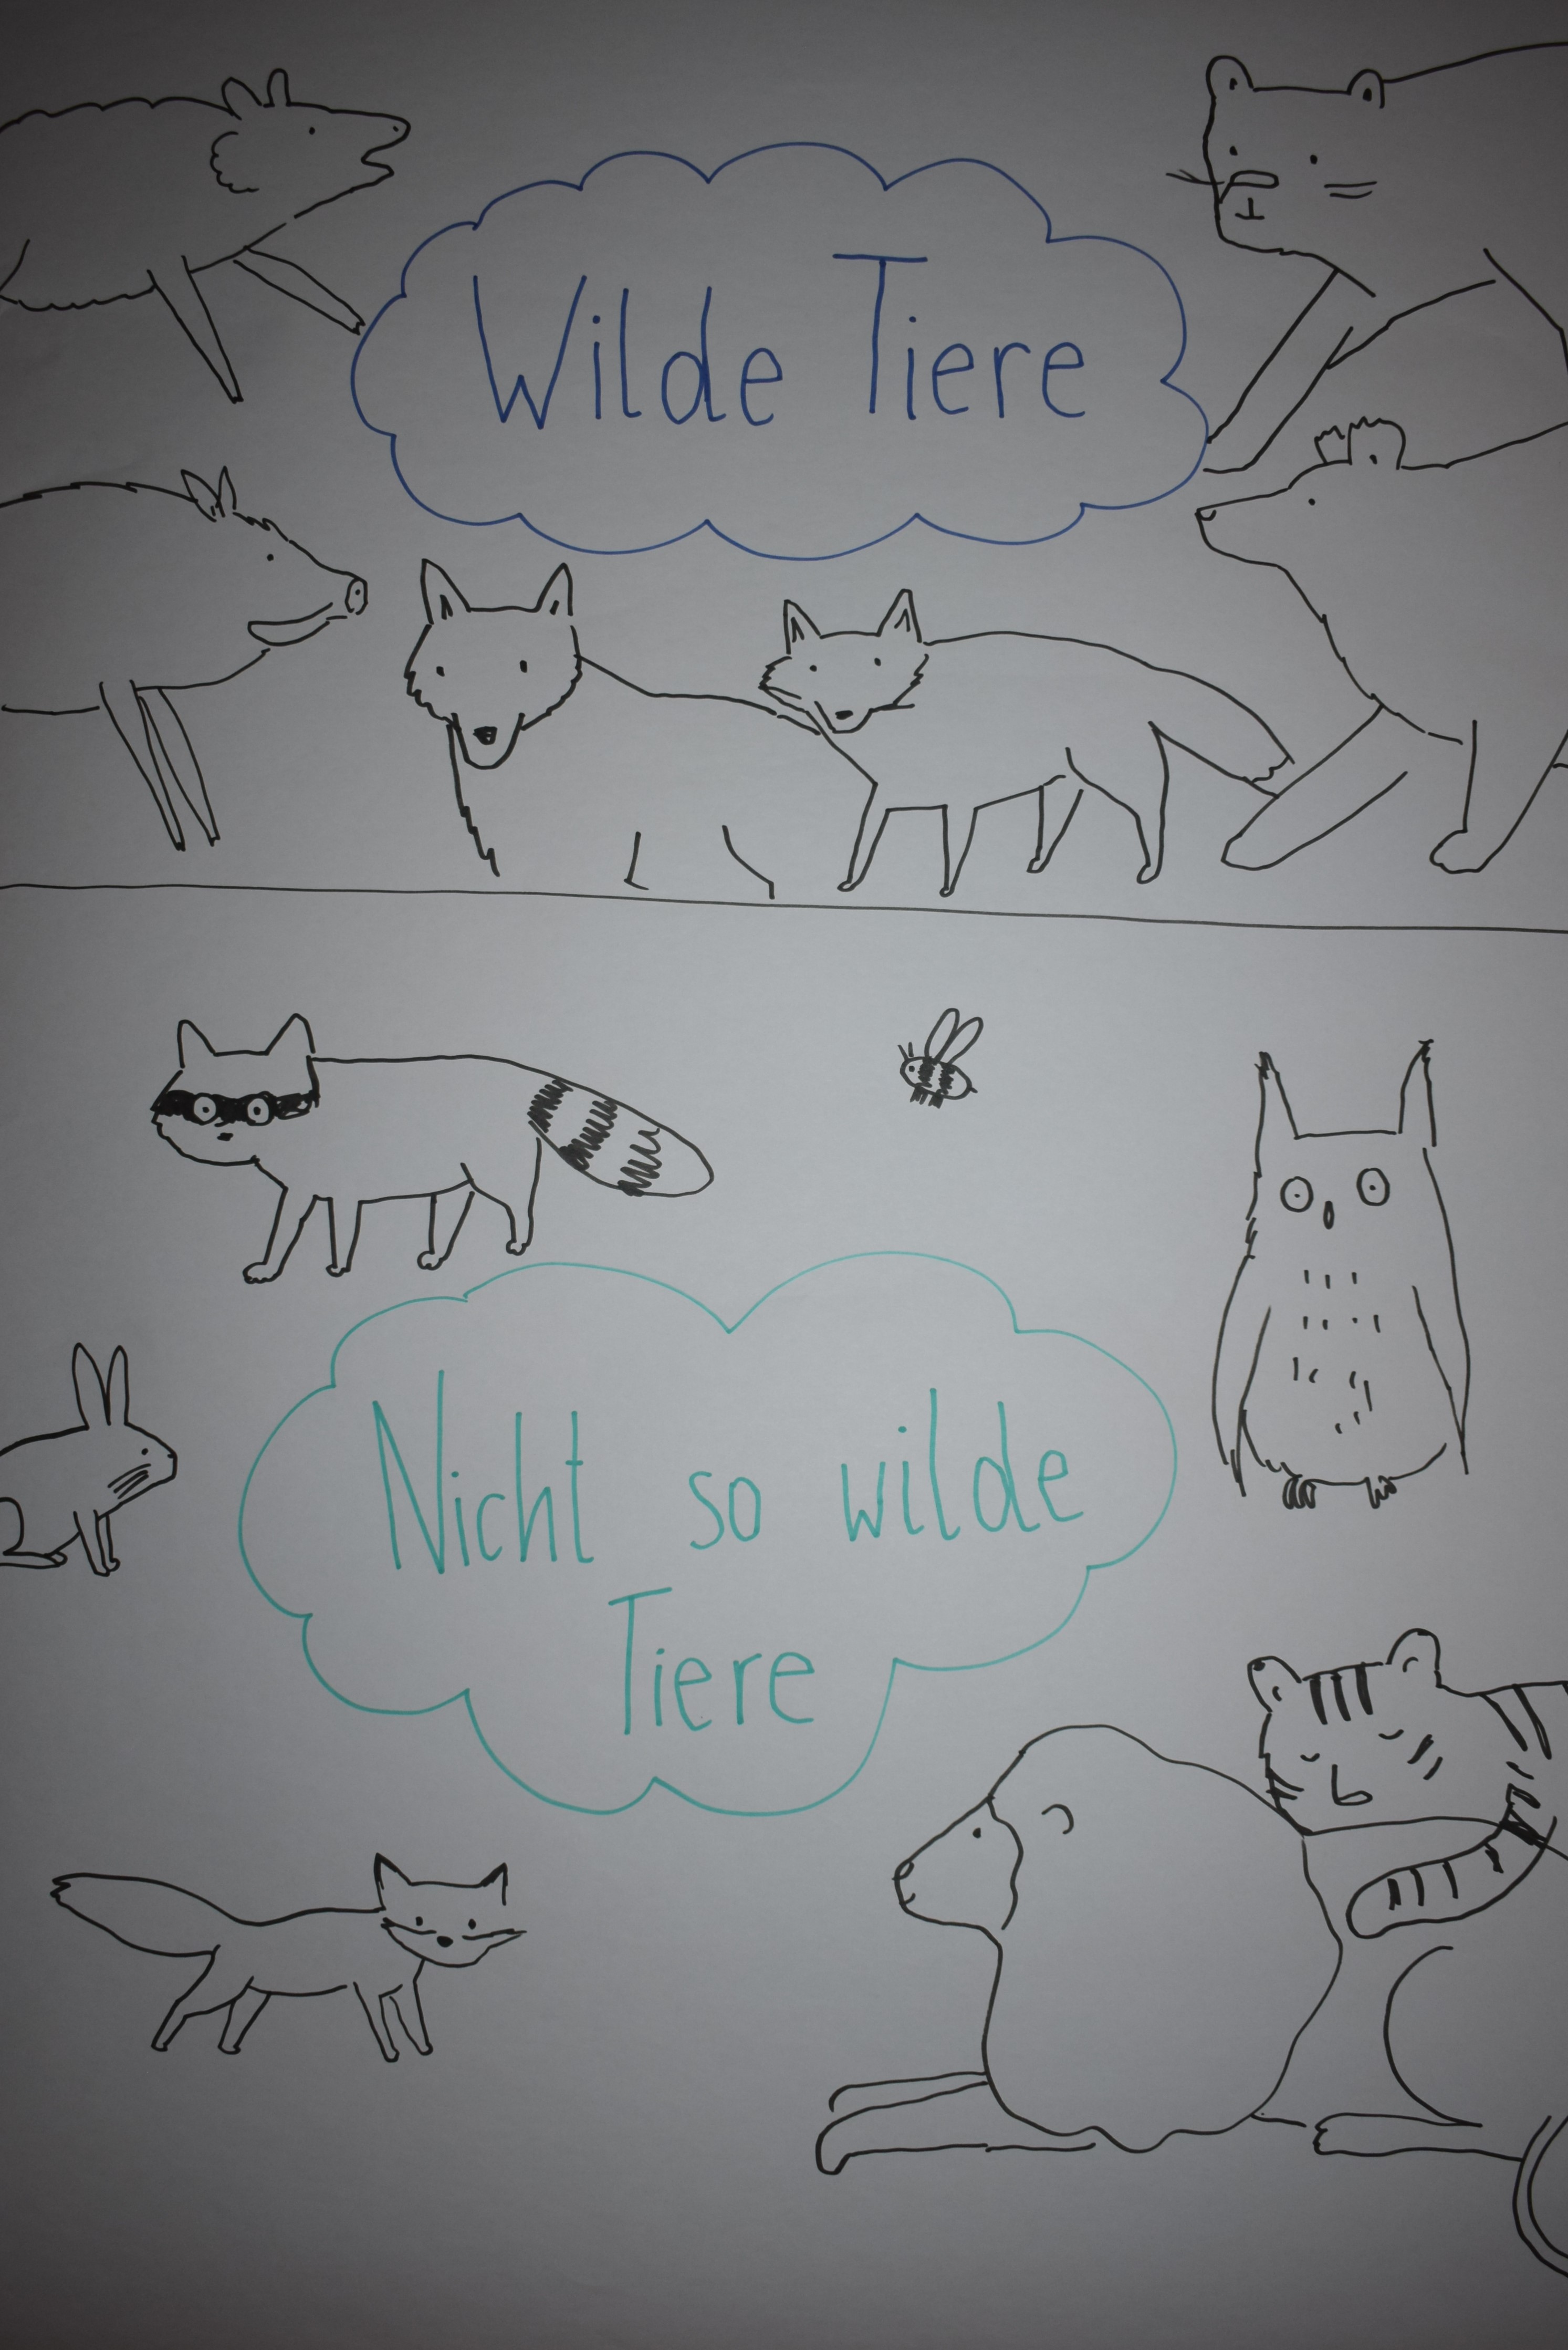 Wilde Tiere
Nicht so wilde
Tiere